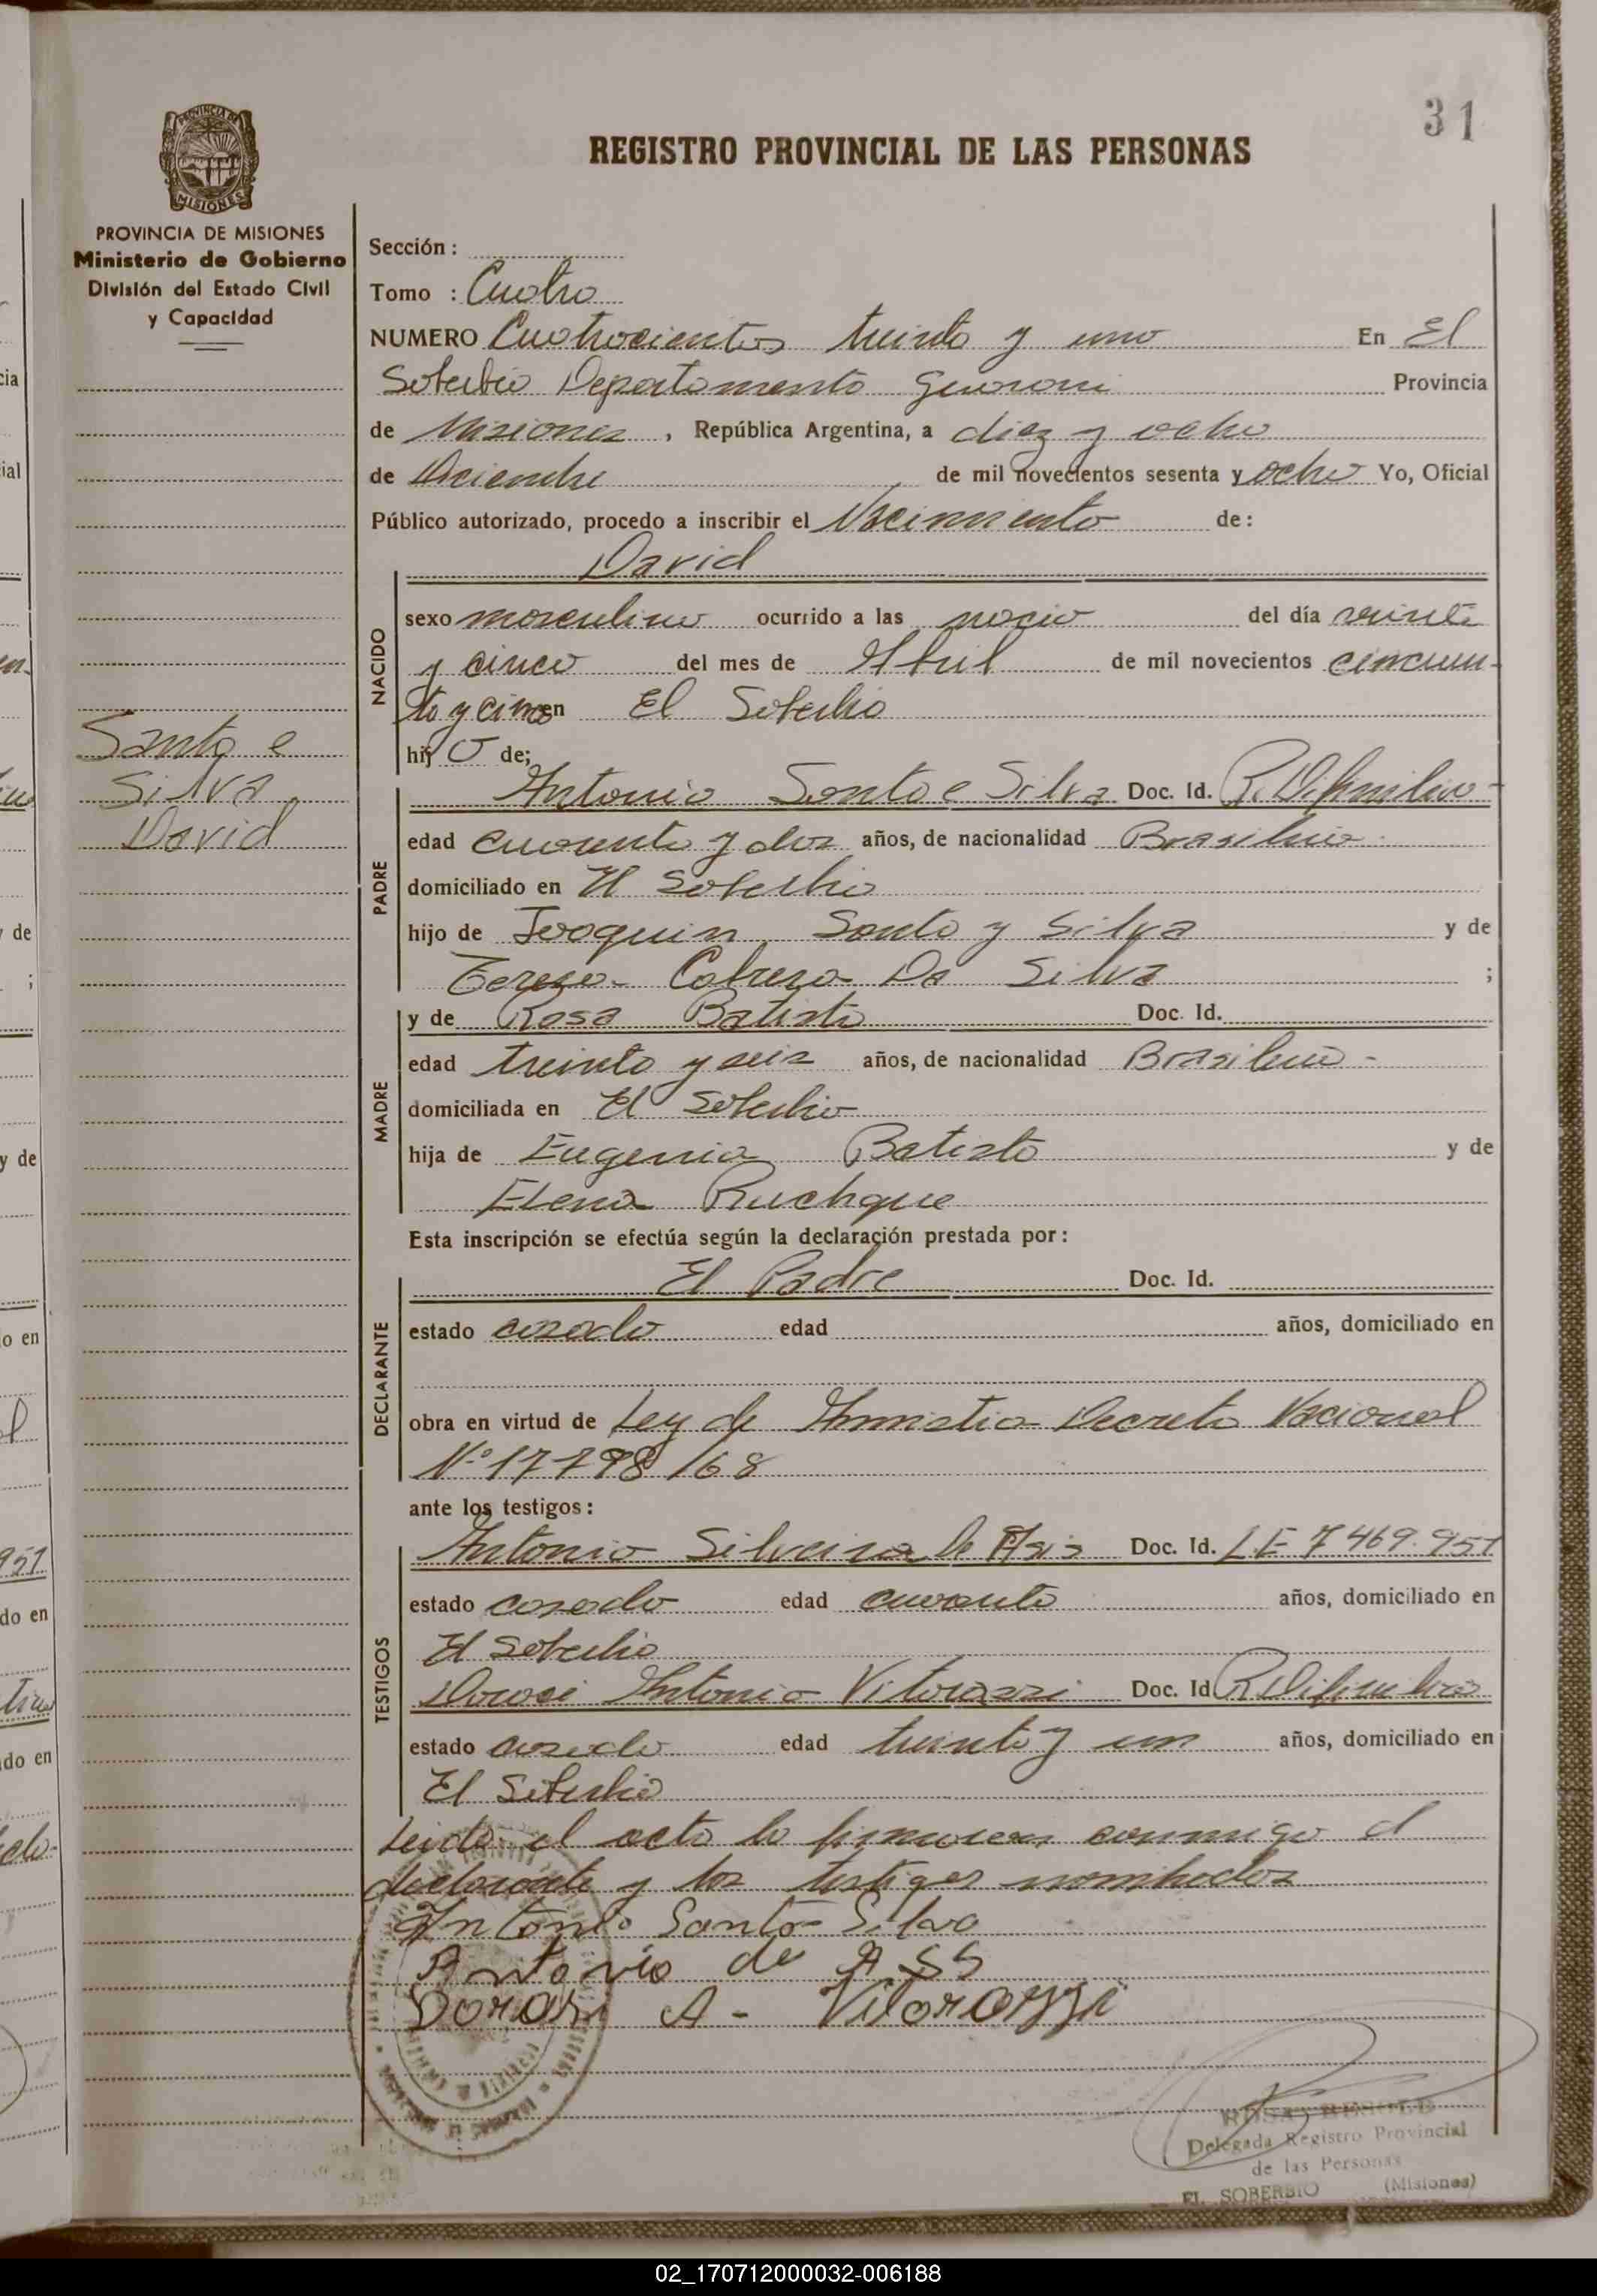 31
REGISTRO PROVINCIAL DE LAS PERSONAS
PROVINCIA DE MISIONES
Ministerio de Gobierno
División del Estado Civil
y Capacidad
Santo e
Silva
David
Sección :
Tomo : Cuatro
NUMERO Cuatrocientos treinta y uno En El
Soberbio Departamento Guarani Provincia
de Misiones , República Argentina, a diez y ocho
de Diciembre de mil novecientos sesenta y ocho Yo, Oficial
Público autorizado, procedo a inscribir el Nacimiento de:
David
NACIDO
sexo masculino ocurrido a las del día veinte
y cinco del mes de Abril de mil novecientos cincuen-
ta y cinco en El Soberbio
hijo de;
PADRE
Antonio Santo e Silva Doc. Id.
edad cuarenta y dos años, de nacionalidad Brasileño
domiciliado en El Soberbio
hijo de Joaquin Santo y Silva y de
Tereza Da Silva ;
MADRE
y de Rosa Batista Doc. Id.
edad treinta y seis años, de nacionalidad
domiciliada en El Soberbio
hija de Eugenia Batista y de
Elena Ruchque
Esta inscripción se efectúa según la declaración prestada por :
DECLARANTE
El Padre Doc. Id.
estado casado edad años, domiciliado en
obra en virtud de Ley de Amnistia Decreto Nacional
Nº 17798/68
ante los testigos :
TESTIGOS
Antonio Silveira de Asis Doc. Id. LE 7469.951
estado casado edad cuarenta años, domiciliado en
El Soberbio
Antonio Vitorazzi Doc. Id
estado casado edad treinta y un años, domiciliado en
El Soberbio
Leida el acta la firmaron conmigo el
declarante y los testigos nombrados
Antonio Santo Silva
Antonio de ASS
Dorasi A - Vitorazzi
Delegada Registro Provincial
de las Personas
EL SOBERBIO (Misiones)
02_170712000032-006188